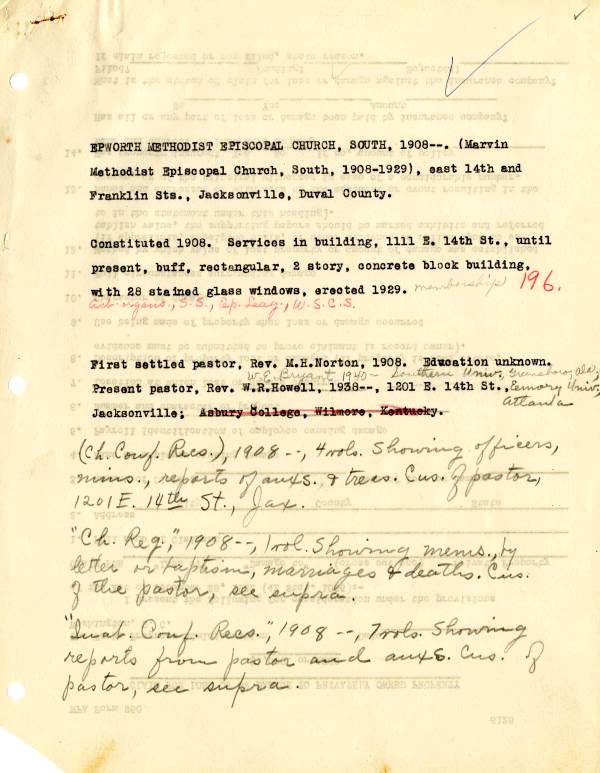 EPWORTH METHODIST EPISCOPAL CHURCH, SOUTH, 1908--. (Marvin
Methodist Episcopal Church, South, 1908-1929), east 14th and
Franklin Sts., Jacksonville, Duval County.
Constituted 1908. Services in building, 1111 E. 14th St., until
present, buff, rectangular, 2 story, concrete block building,
with 28 stained glass windows, erected 1929. membership 196.
Act. organs., S.S., Ep. Leag., W.S.C.S.
First settled pastor, Rev. M.H.Norton, 1908. Education unknown.
W.E. Bryant 1940- Southern Univ., Greensboro, Ala.,
Present pastor, Rev. W.R.Howell, 1938--, 1201 E. 14th St., Emory Univ.,
Jacksonville; Asbury College, Wilmore, Kentucky. Atlanta
(Ch. Conf. Recs.), 1908--, 4 vols. Showing officers,
mins., reports of auxs. & trees. Cus. of pastor,
1201 E. 14th St., Jax.
"Ch. Reg.", 1908--, 1 vol. Showing mems., by
letter or baptism, marriages & deaths. Cus.
of the pastor, see supra.
"Quat. Conf. Recs.", 1908--, 7 vols. Showing
reports from pastor and auxs. Cus. of
pastor, see supra.